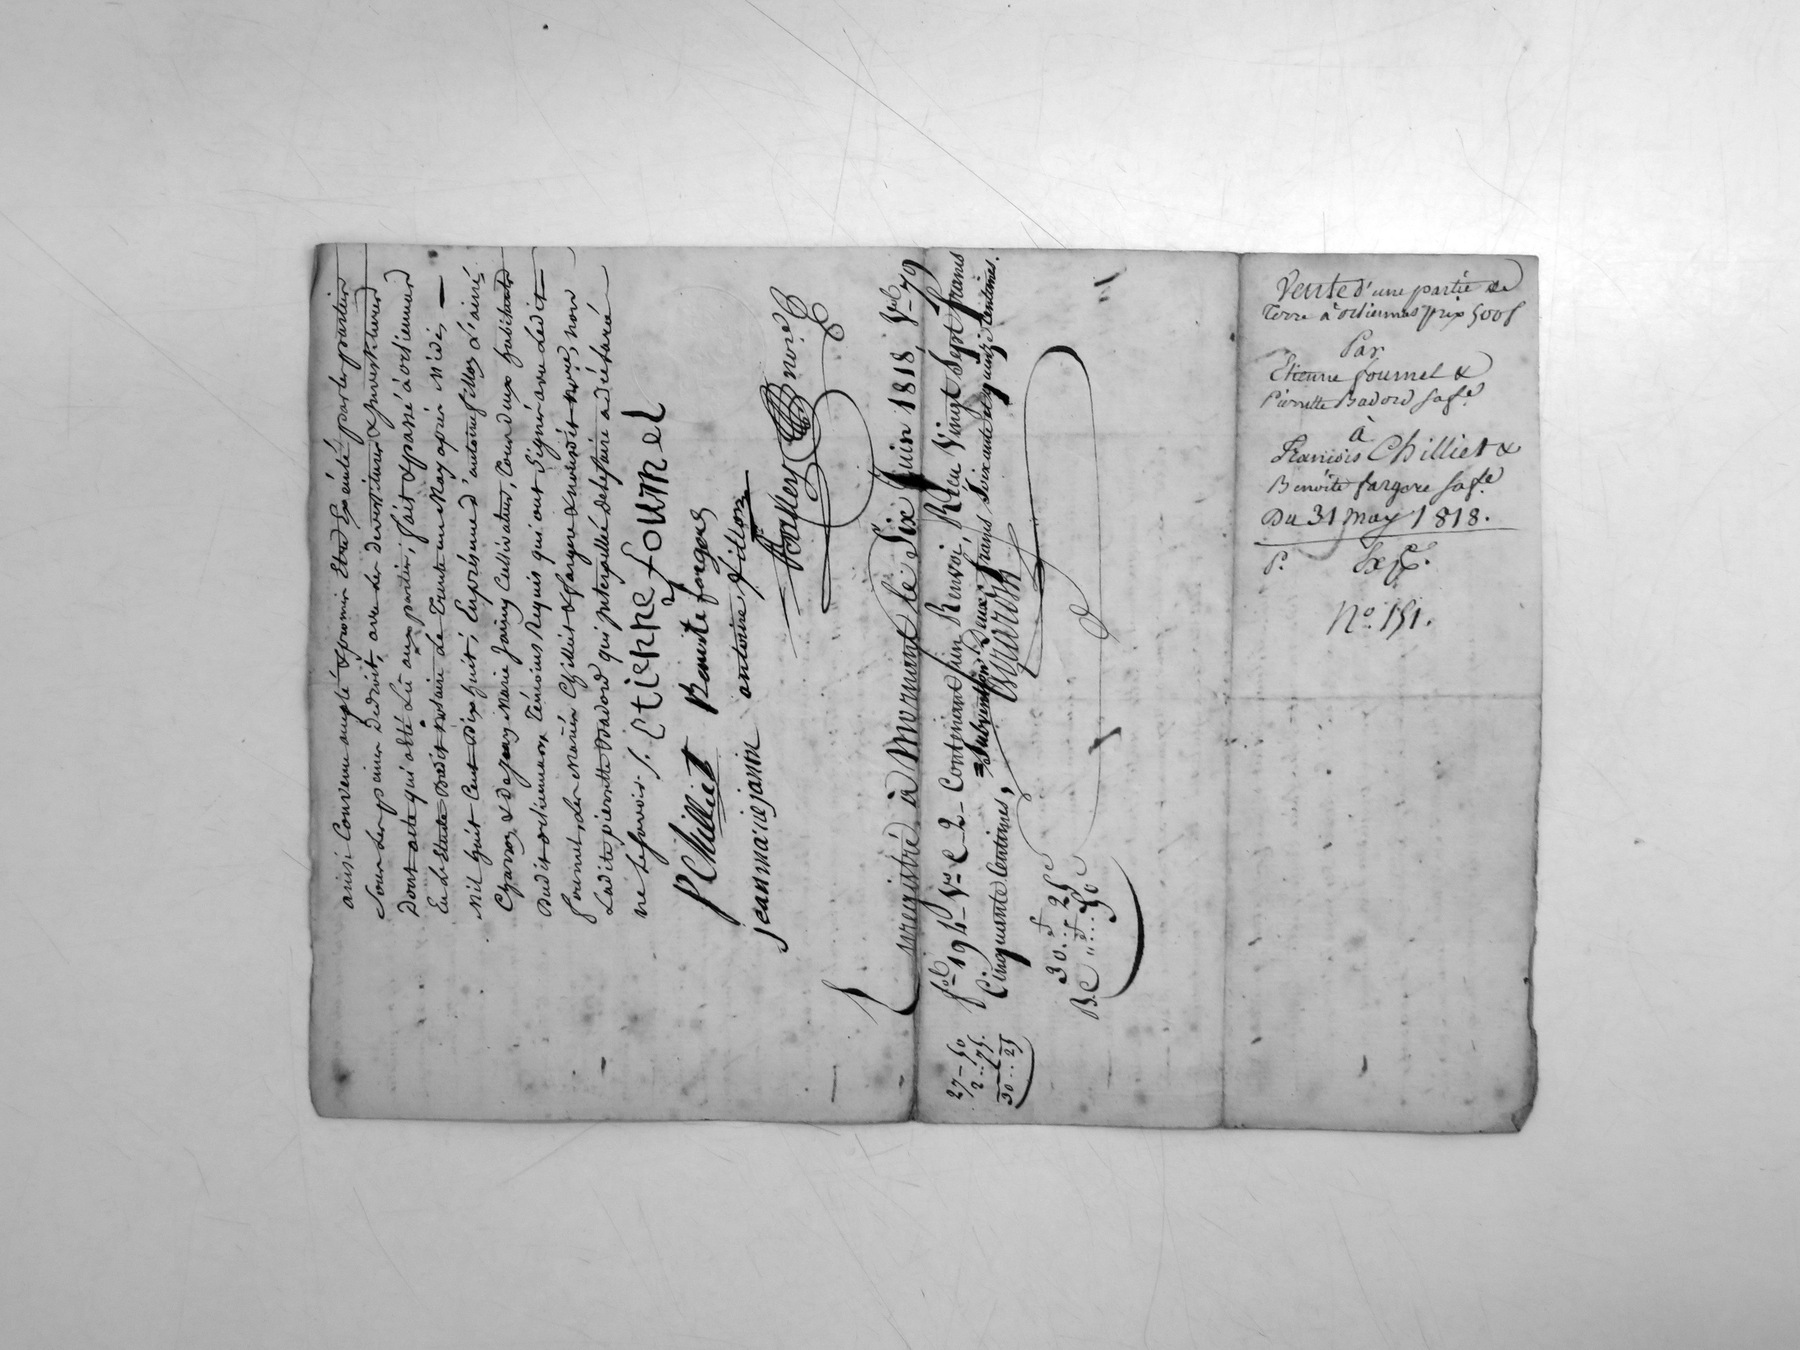 ainsi Convenu accepté & promis Etre Exécuté par les parties
Sous les peines de droit, avec les devestitures & investitures
Dont acte qui a été Lû aux parties, fait & passé à orliennas
En L'Etude Dudit Notaire Le Trente un May après Midi, —
Mil huit Cent Dix huit, En présence d'antoine fillon L'ainé
& De Jean Marie Janin, Cultivateurs, tous deux habitants
Dudit orliennas, Témoins Requis qui ont Signé avec Ledit
fournel, les Mariés Chilliet & fargere & Nousdit Not.re, non
Ladite pierrette Badord qui Interpellée de le faire a déclaré
ne le Savoir. /.
Etienne fournel
f Chilliet Benoite fargere
jean marie janin antoine fillon
Not.re
Enregistré à Mornant le Six Juin 1818, Vol. 79
fol. 194 V.o C 2 Contenant Un Renvoi, Reçu Vingt Sept francs
Cinquante Centimes, Subvention Deux francs Soixante et quinze Centimes.
27 – 50
2 .. 75.
30 .. 25
30.f .. 25 c
B.C " .... 50 c
Vente d'une partie de
Terre à orliennas prix 500f
Par
Etienne fournel &
Pierrette Badord sa fe.
à
François Chilliet &
Benoîte fargere sa fe.
Du 31 May 1818.
P. Exp.
No. 151.